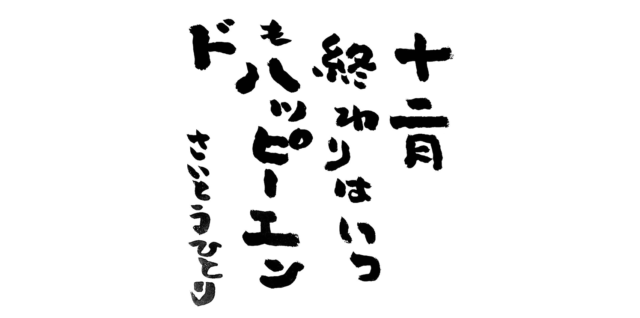 十二月
終わりはいつ
もハッピーエン
ド
さいとうひとり